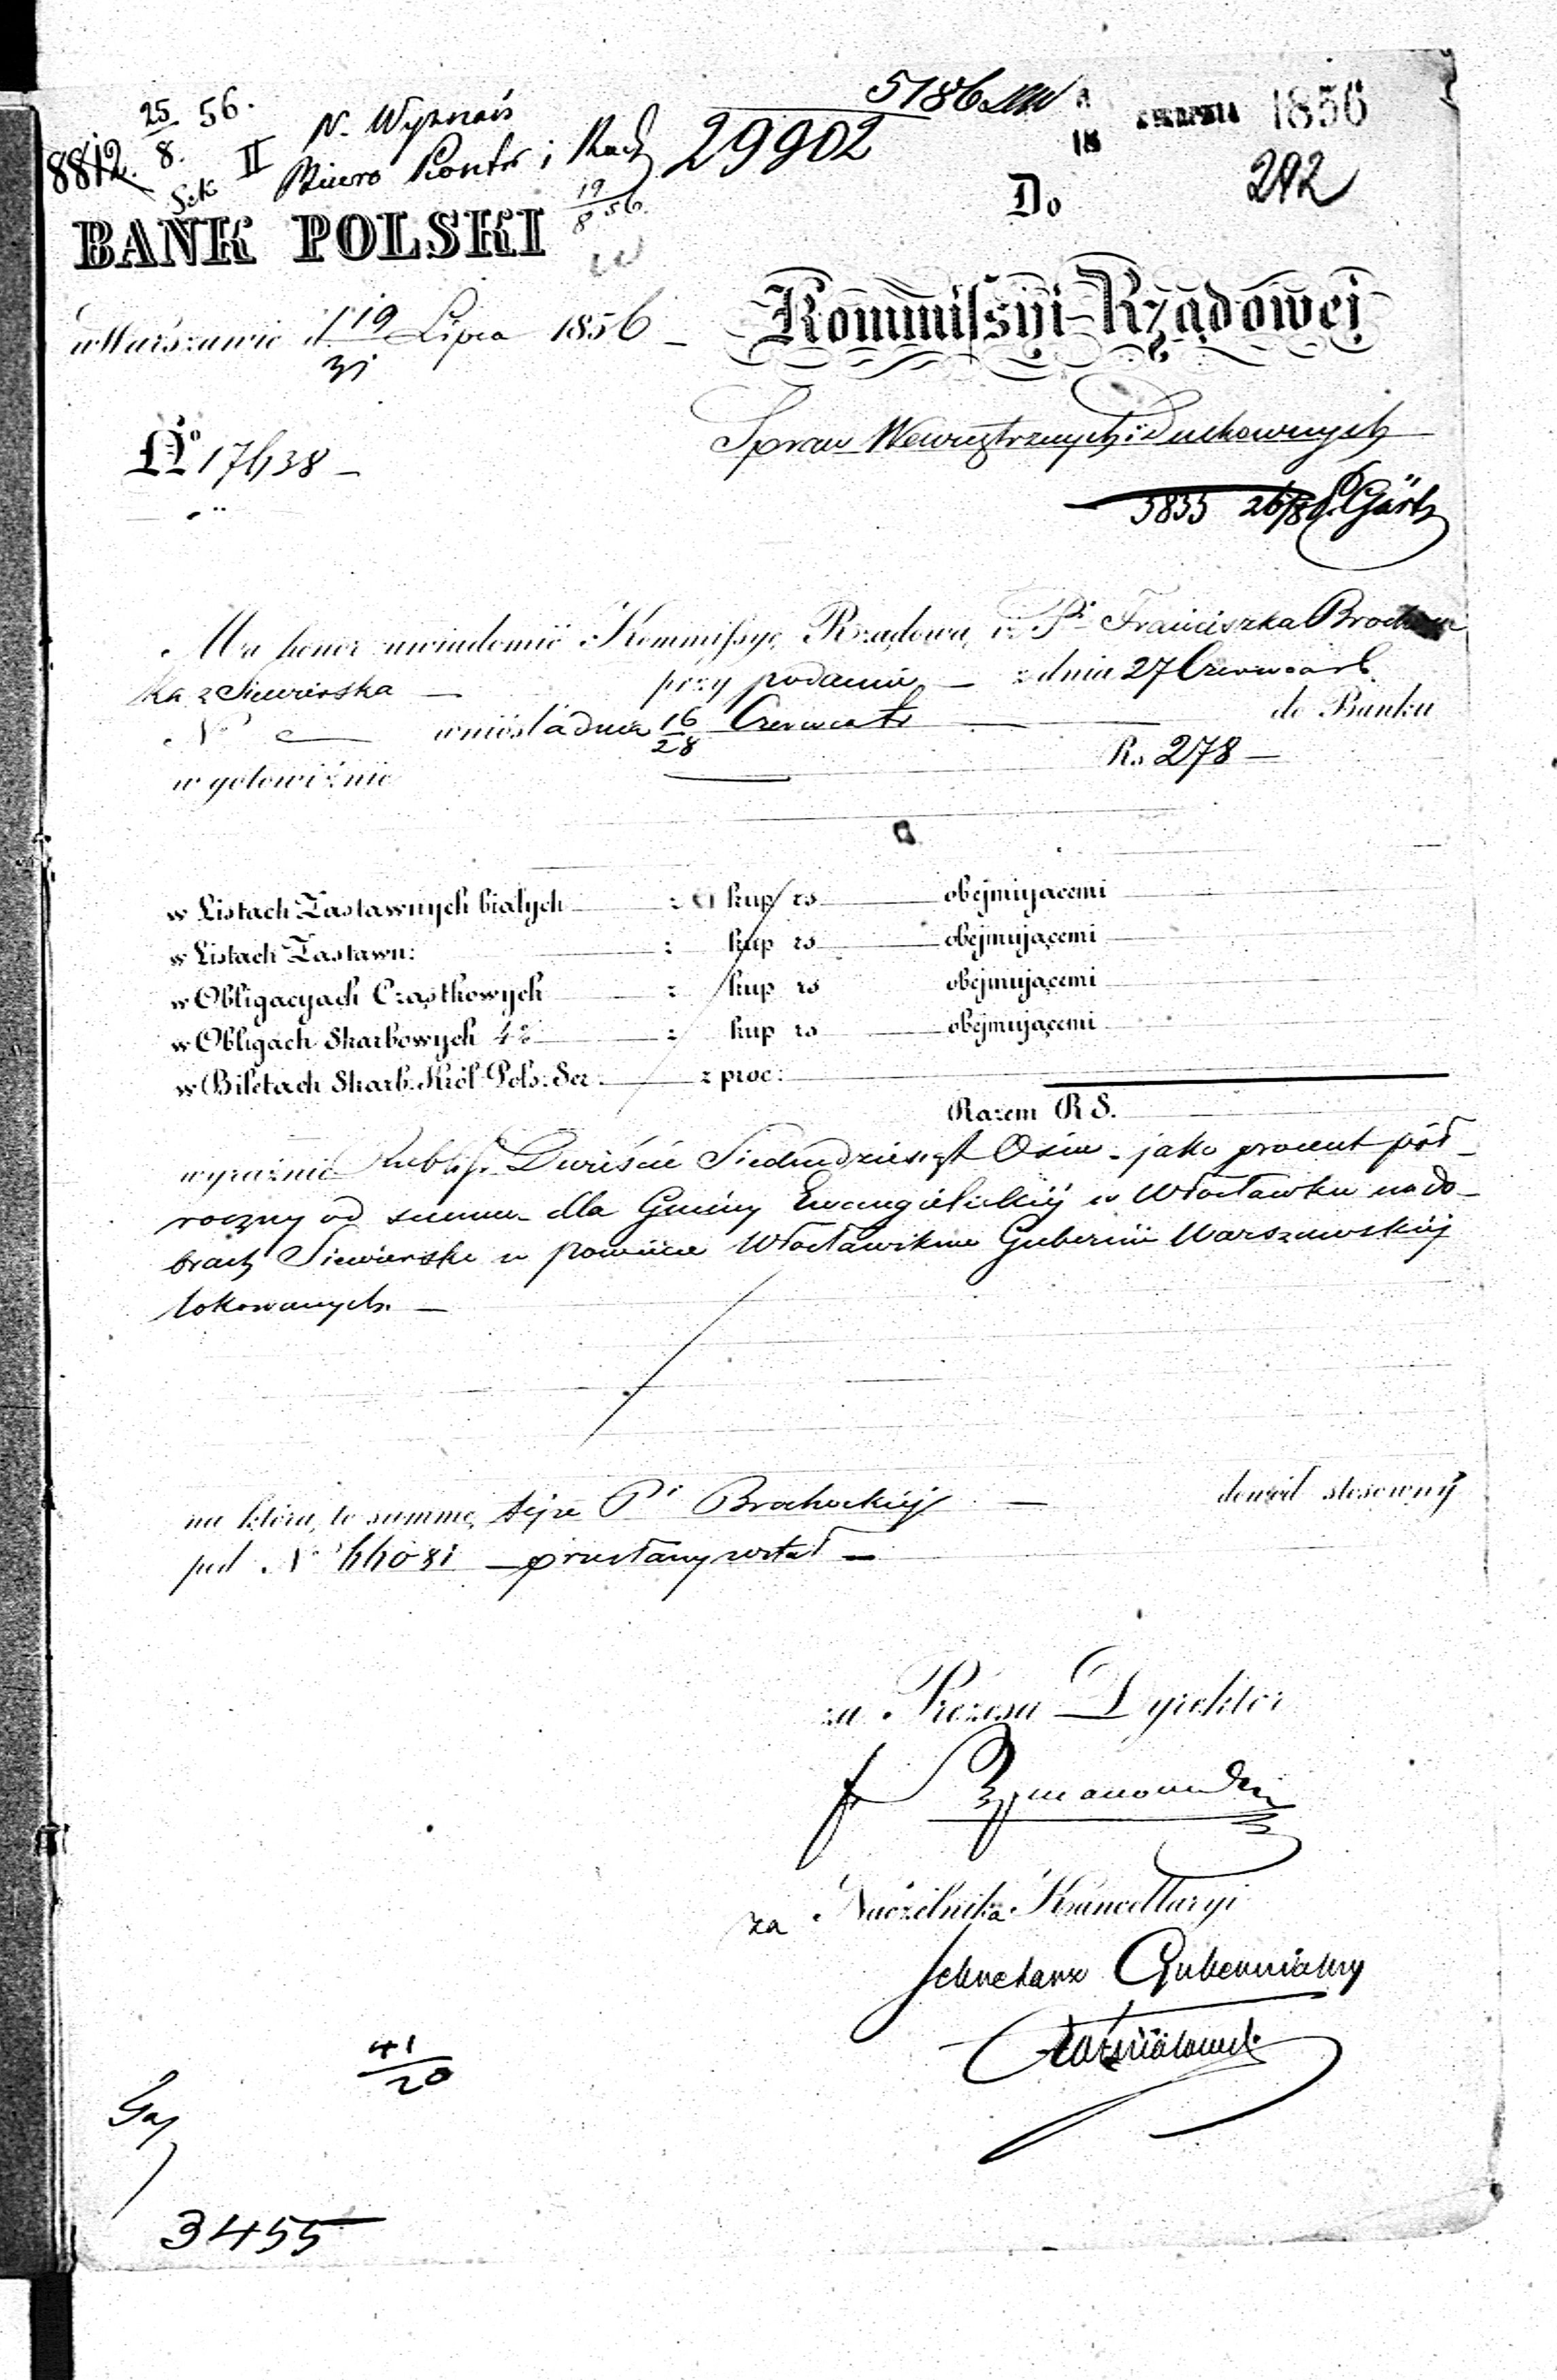 25/8 56.
8812.
Sek II
N. Wyznań
Biuro Kontr i Rach
19/8 56.
5186
29902
1856
18
292
BANK POLSKI
Do
w Warszawie d. 19/31 Lipca 1856 —
Kommissyi Rządowej
Spraw Wewnętrznych i Duchownych
No 17638 —
3833 26/8 Gärtz
Ma honor uwiadomić Kommissyę Rządową, iż Pi Franciszka Brochoc
ka z Siewierska — przy podaniu — z dnia 27 Czerwca r b.
No — wniosła dnia 16/28 Czerwca tr — do Banku
w gotowiźnie — Rs 278 —
w Listach Zastawnych białych z kup rs obejmującemi
w Listach Zastawn: z kup rs obejmującemi
w Obligacyach Cząstkowych z kup rs obejmującemi
w Obligach Skarbowych 4% z kup rs obejmującemi
w Biletach Skarb. Król. Pols. Ser. z proc:
Razem R S.
wyraźnie Rubli s. Dwieście Siedmdziesiąt Ośm - jako procent pół-
roczny od summ dla Gminy Ewangielickiéj w Włocławku na do-
brach Siewiersk w powiecie Włocławskim Gubernii Warszawskiéj
lokowanych. —
na którą to summę tejże Pi Brochockiéj — dowód stosowny
pod No 66081 — przesłany został —
za Prezesa Dyrektor
za Naczelnika Kancellaryi
Sekretarz Gubernialny
41/20
3455